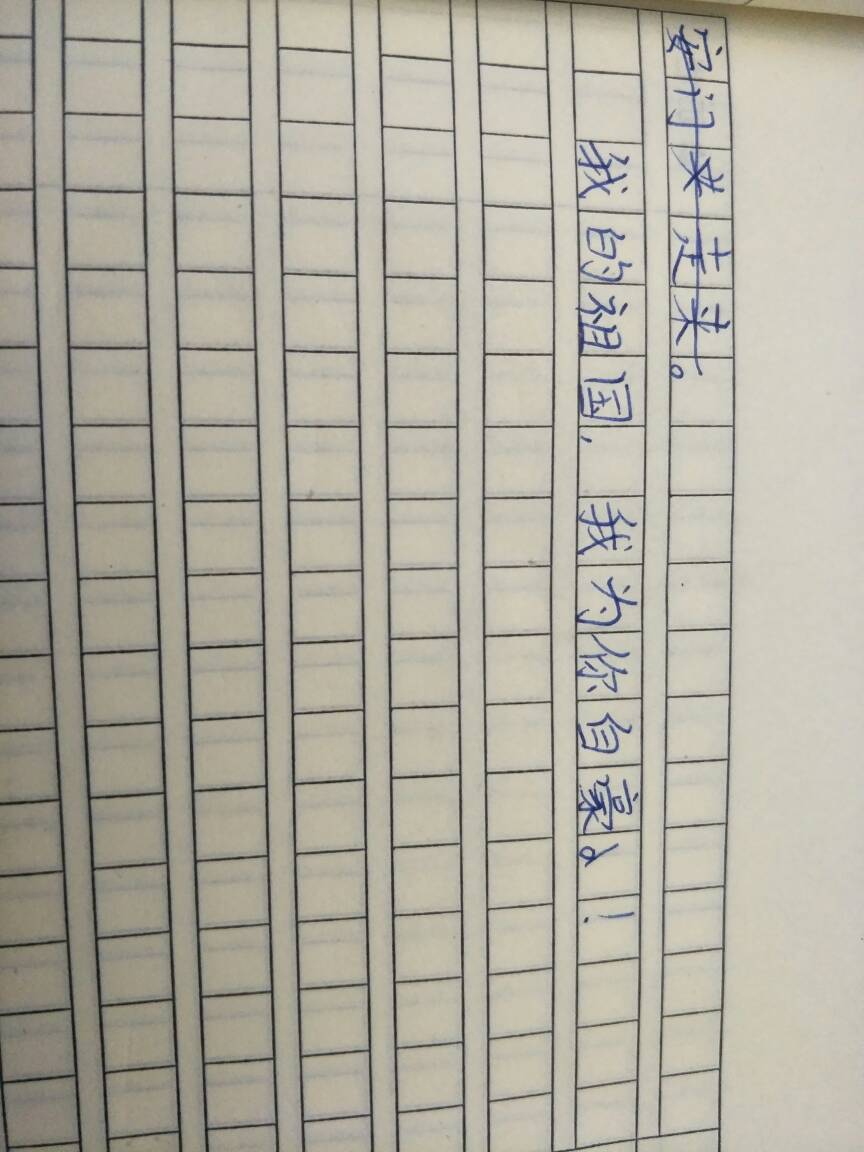 安门来走来。
我的祖国，我为你自豪。！